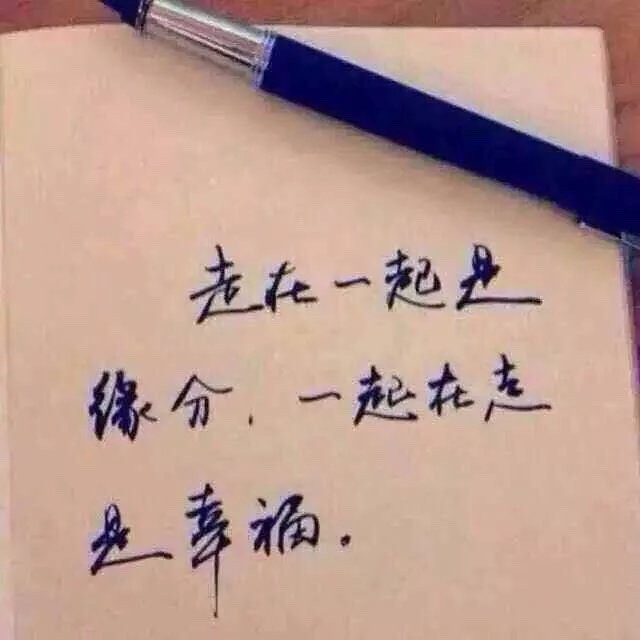 走在一起是
缘分,一起在走
是幸福。